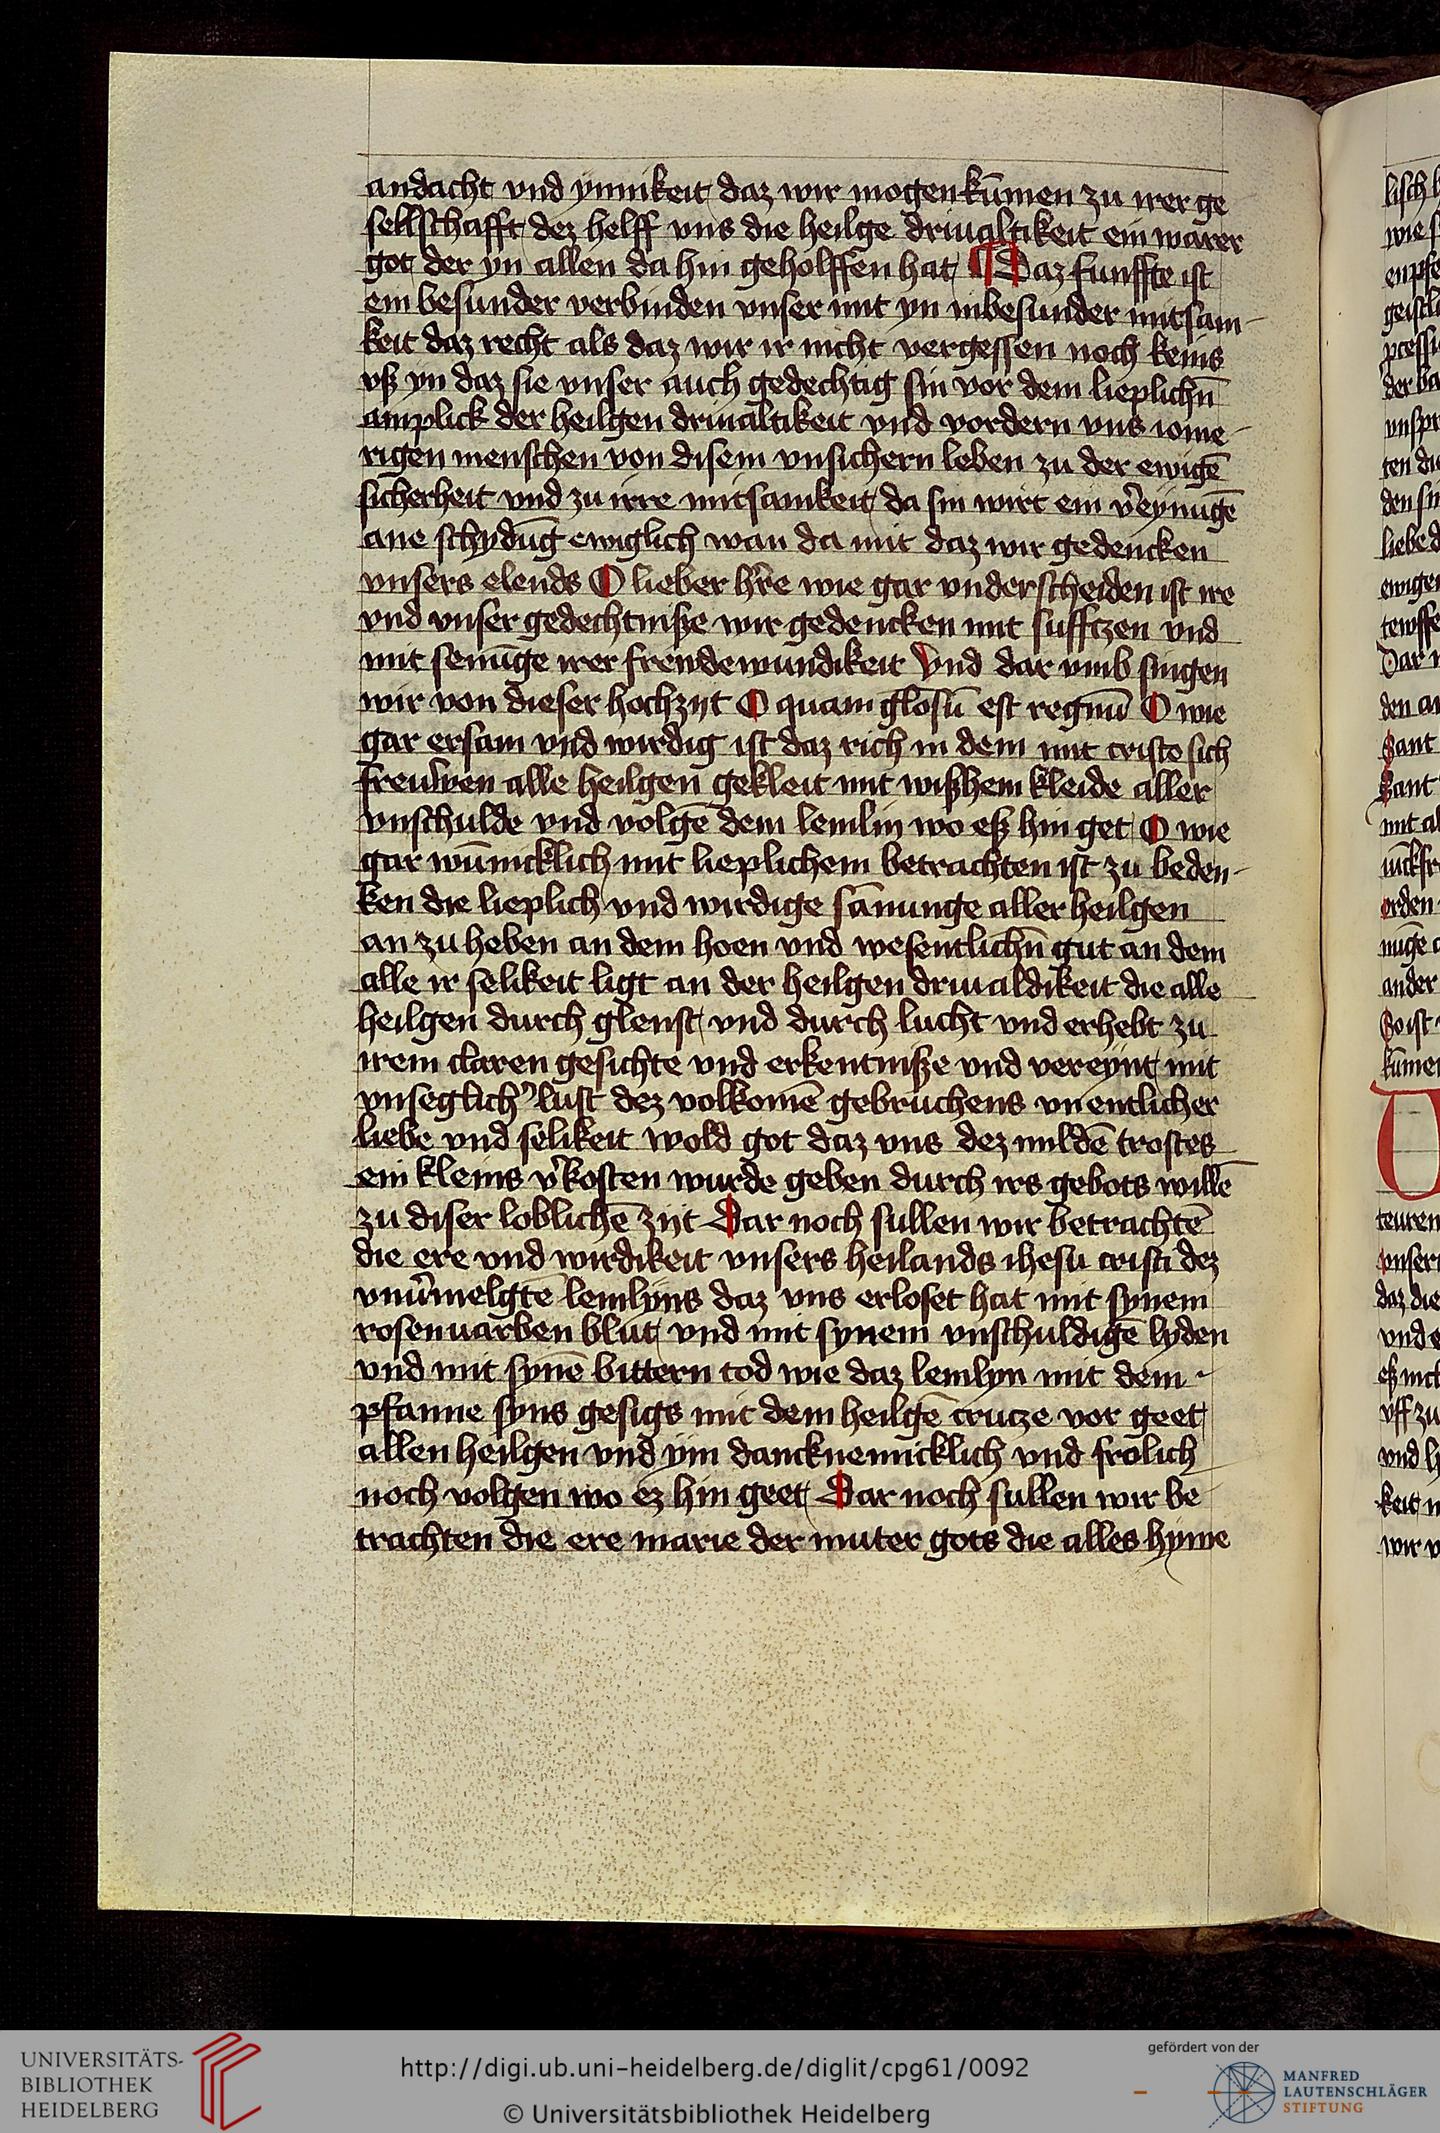 andacht vnd ynnikeit daz wir mogen kūmen zu irer ge
sellschafft dez helff vns die heilge driualtikeit ein warer
got der yn allen da hin geholffen hat ¶ Daz funffte ist
ein besunder verbinden vnser mit yn inbesunder mitsam-
keit daz recht als daz wir ir nicht vergessen noch keins
vß yn daz sie vnser auch gedechtig sin vor dem lieplichn̄
anplick der heilgen driualtikeit vnd vordern vns iome-
rigen menschen von disem vnsichern leben zu der ewigē
sicherheit vnd zu irre mitsamkeit da sin wirt ein v̓eynūgē
ane schydūg ewiglich wan da mit daz wir gedencken
vnsers elends O lieber hr̄e wie gar vnderscheiden ist ire
vnd vnser gedechtniße wir gedencken mit sufftzen vnd
mit senūge irer freudewundikeit Vnd dar vmb singen
wir von dieser hochzijt O quam glosū est regnū O wie
gar ersam vnd wirdig ist daz rich in dem mit cristo sich
freuwen alle heilgen gekleit mit wißhem kleide aller
vnschulde vnd volgē dem lemlin wo eß hin get O wie
gar wūnicklich mit lieplichem betrachten ist zu beden-
ken die lieplich vnd wirdige sāmunge aller heilgen
an zu heben an dem hoen vnd wesentlichn̄ gut an dem
alle ir selikeit ligt an der heilgen driualdikeit die alle
heilgen durch glenst vnd durch lucht vnd erhebt zu
irem claren gesichte vnd erkentniße vnd vereynt mit
vnseglich̓ lust dez volkomē gebruchens vnentlicher
liebe vnd selikeit wold got daz vns dez mildē trostes
ein kleins v̓kosten wurde geben durch irs gebots willē
zu diser loblichē zijt Dar noch sullen wir betrachtē
die ere vnd wirdikeit vnsers heilands ihesu cristi dez
vnūmelgtē lemlyns daz vns erloset hat mit synem
rosenuarben blut vnd mit synem vnschuldigē lyden
vnd mit synē bittern tod wie daz lemlyn mit dem
pfanne syns gesigs mit dem heilgē crutze vor geet
allen heilgen vnd ym dancknemicklich vnd frolich
noch volgen wo ez hin geet Dar noch sullen wir be
trachten die ere marie der muter gots die alles hyme
UNIVERSITÄTS-
BIBLIOTHEK
HEIDELBERG
http://digi.ub.uni-heidelberg.de/diglit/cpg61/0092
© Universitätsbibliothek Heidelberg
gefördert von der
MANFRED
LAUTENSCHLÄGER
STIFTUNG